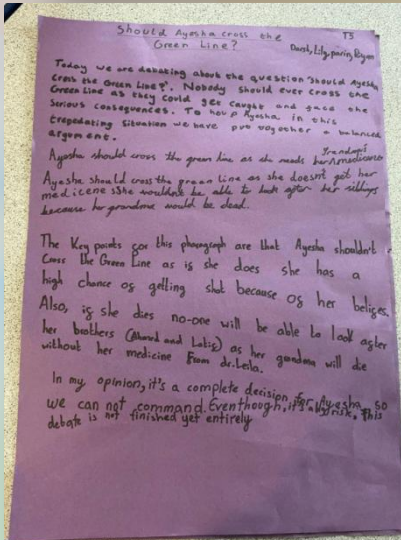 Should Ayesha cross the
Green Line?
T5
Darsh, Lily, parin, Rayan
Today we are debating about the question 'Should Ayesha
cross the Green Line?'. Nobody should ever cross the
Green Line as they could get caught and face the
serious consequences. To help Ayesha in this
trepedating situation we have put together a balanced
argument.
Ayesha should cross the green line as she needs her Grandma's medicenes
Ayesha should cross the green line as she doesn't get her
medicene sshe wouldn't be able to look after her siblings
because her grandma would be dead.
The Key points for this pharagraph are that Ayesha shouldn't
cross the Green Line as is she does she has a
high chance of getting shot because of her belifes.
Also, if she dies no-one will be able to look after
her brothers (Ahmed and Latif) as her grandma will die
without her medicine from dr.Leila.
In my opinion, it's a complete decision for Ayesha, so
we can not command. Eventhough, it's a big risk, this
debate is not finished yet entirely